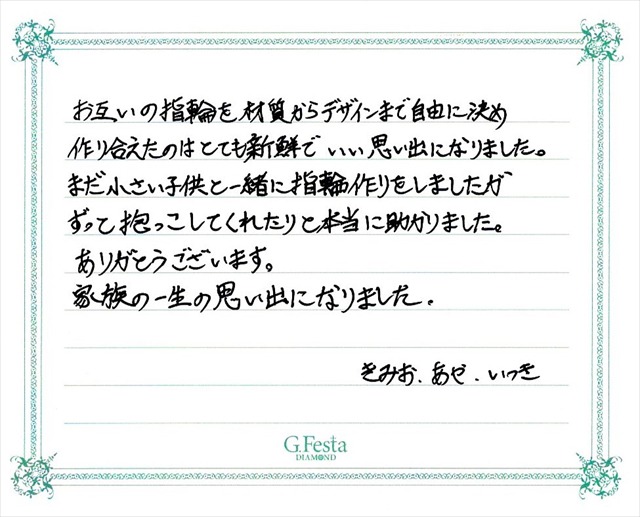 お互いの指輪を材質からデザインまで自由に決め
作り合えたのはとても新鮮でいい思い出になりました。
まだ小さい子供と一緒に指輪作りをしましたが
ずっと抱っこしてくれたりと本当に助かりました。
ありがとうございます。
家族の一生の思い出になりました.
きみお.あぜ.いつき
G.Festa
DIAMOND